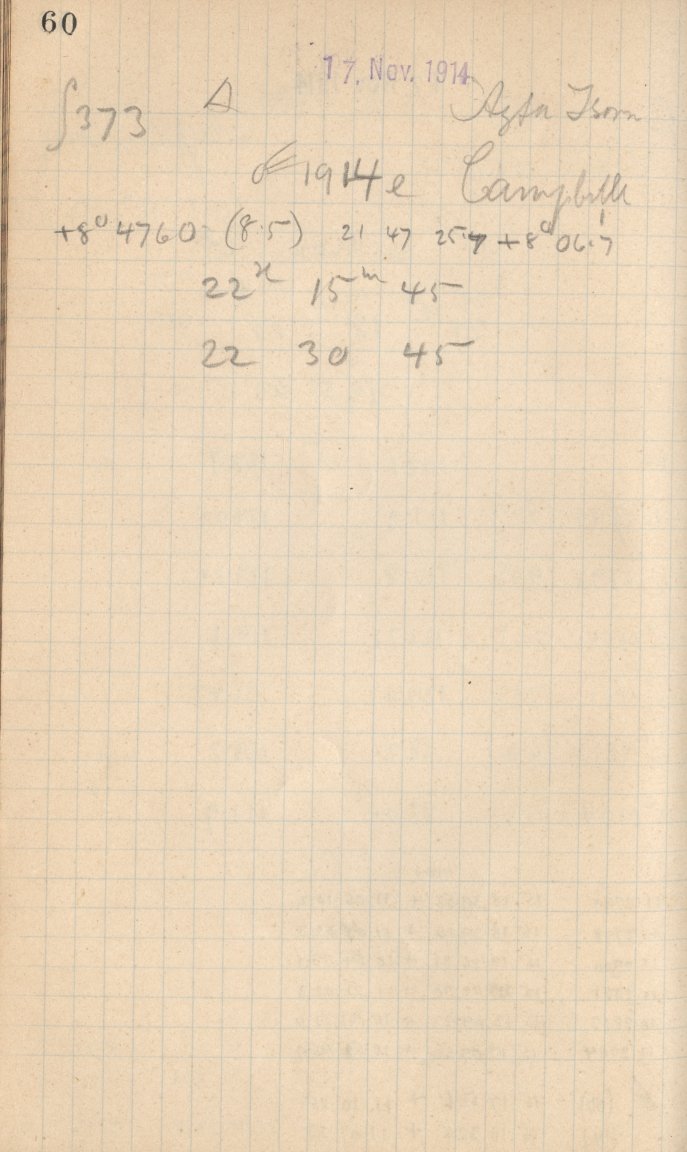 60
17. Nov. 1914
∫373 A Agfa Isorr
☄ 1914 e Campbell
+8° 4760 (8.5) 21 47 25.7 +8° 06.7
22ʰ 15ᵐ 45
22 30 45